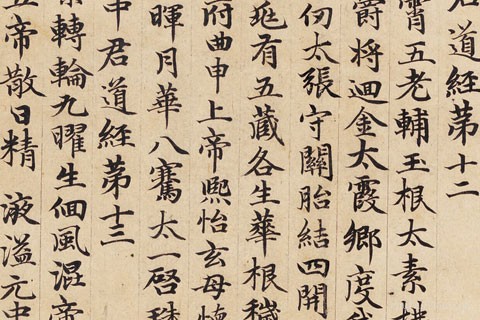 君道經第十二
霄五老輔玉根太素
爵將迴金太霞鄉度
仞太張守關胎結四開
兆有五藏各生華根穢
府曲申上帝熙怡玄母
暉月華八騫太一啓珠
中君道經第十三
轉輪九曜生佪風混帝
五帝散日精液溢元中